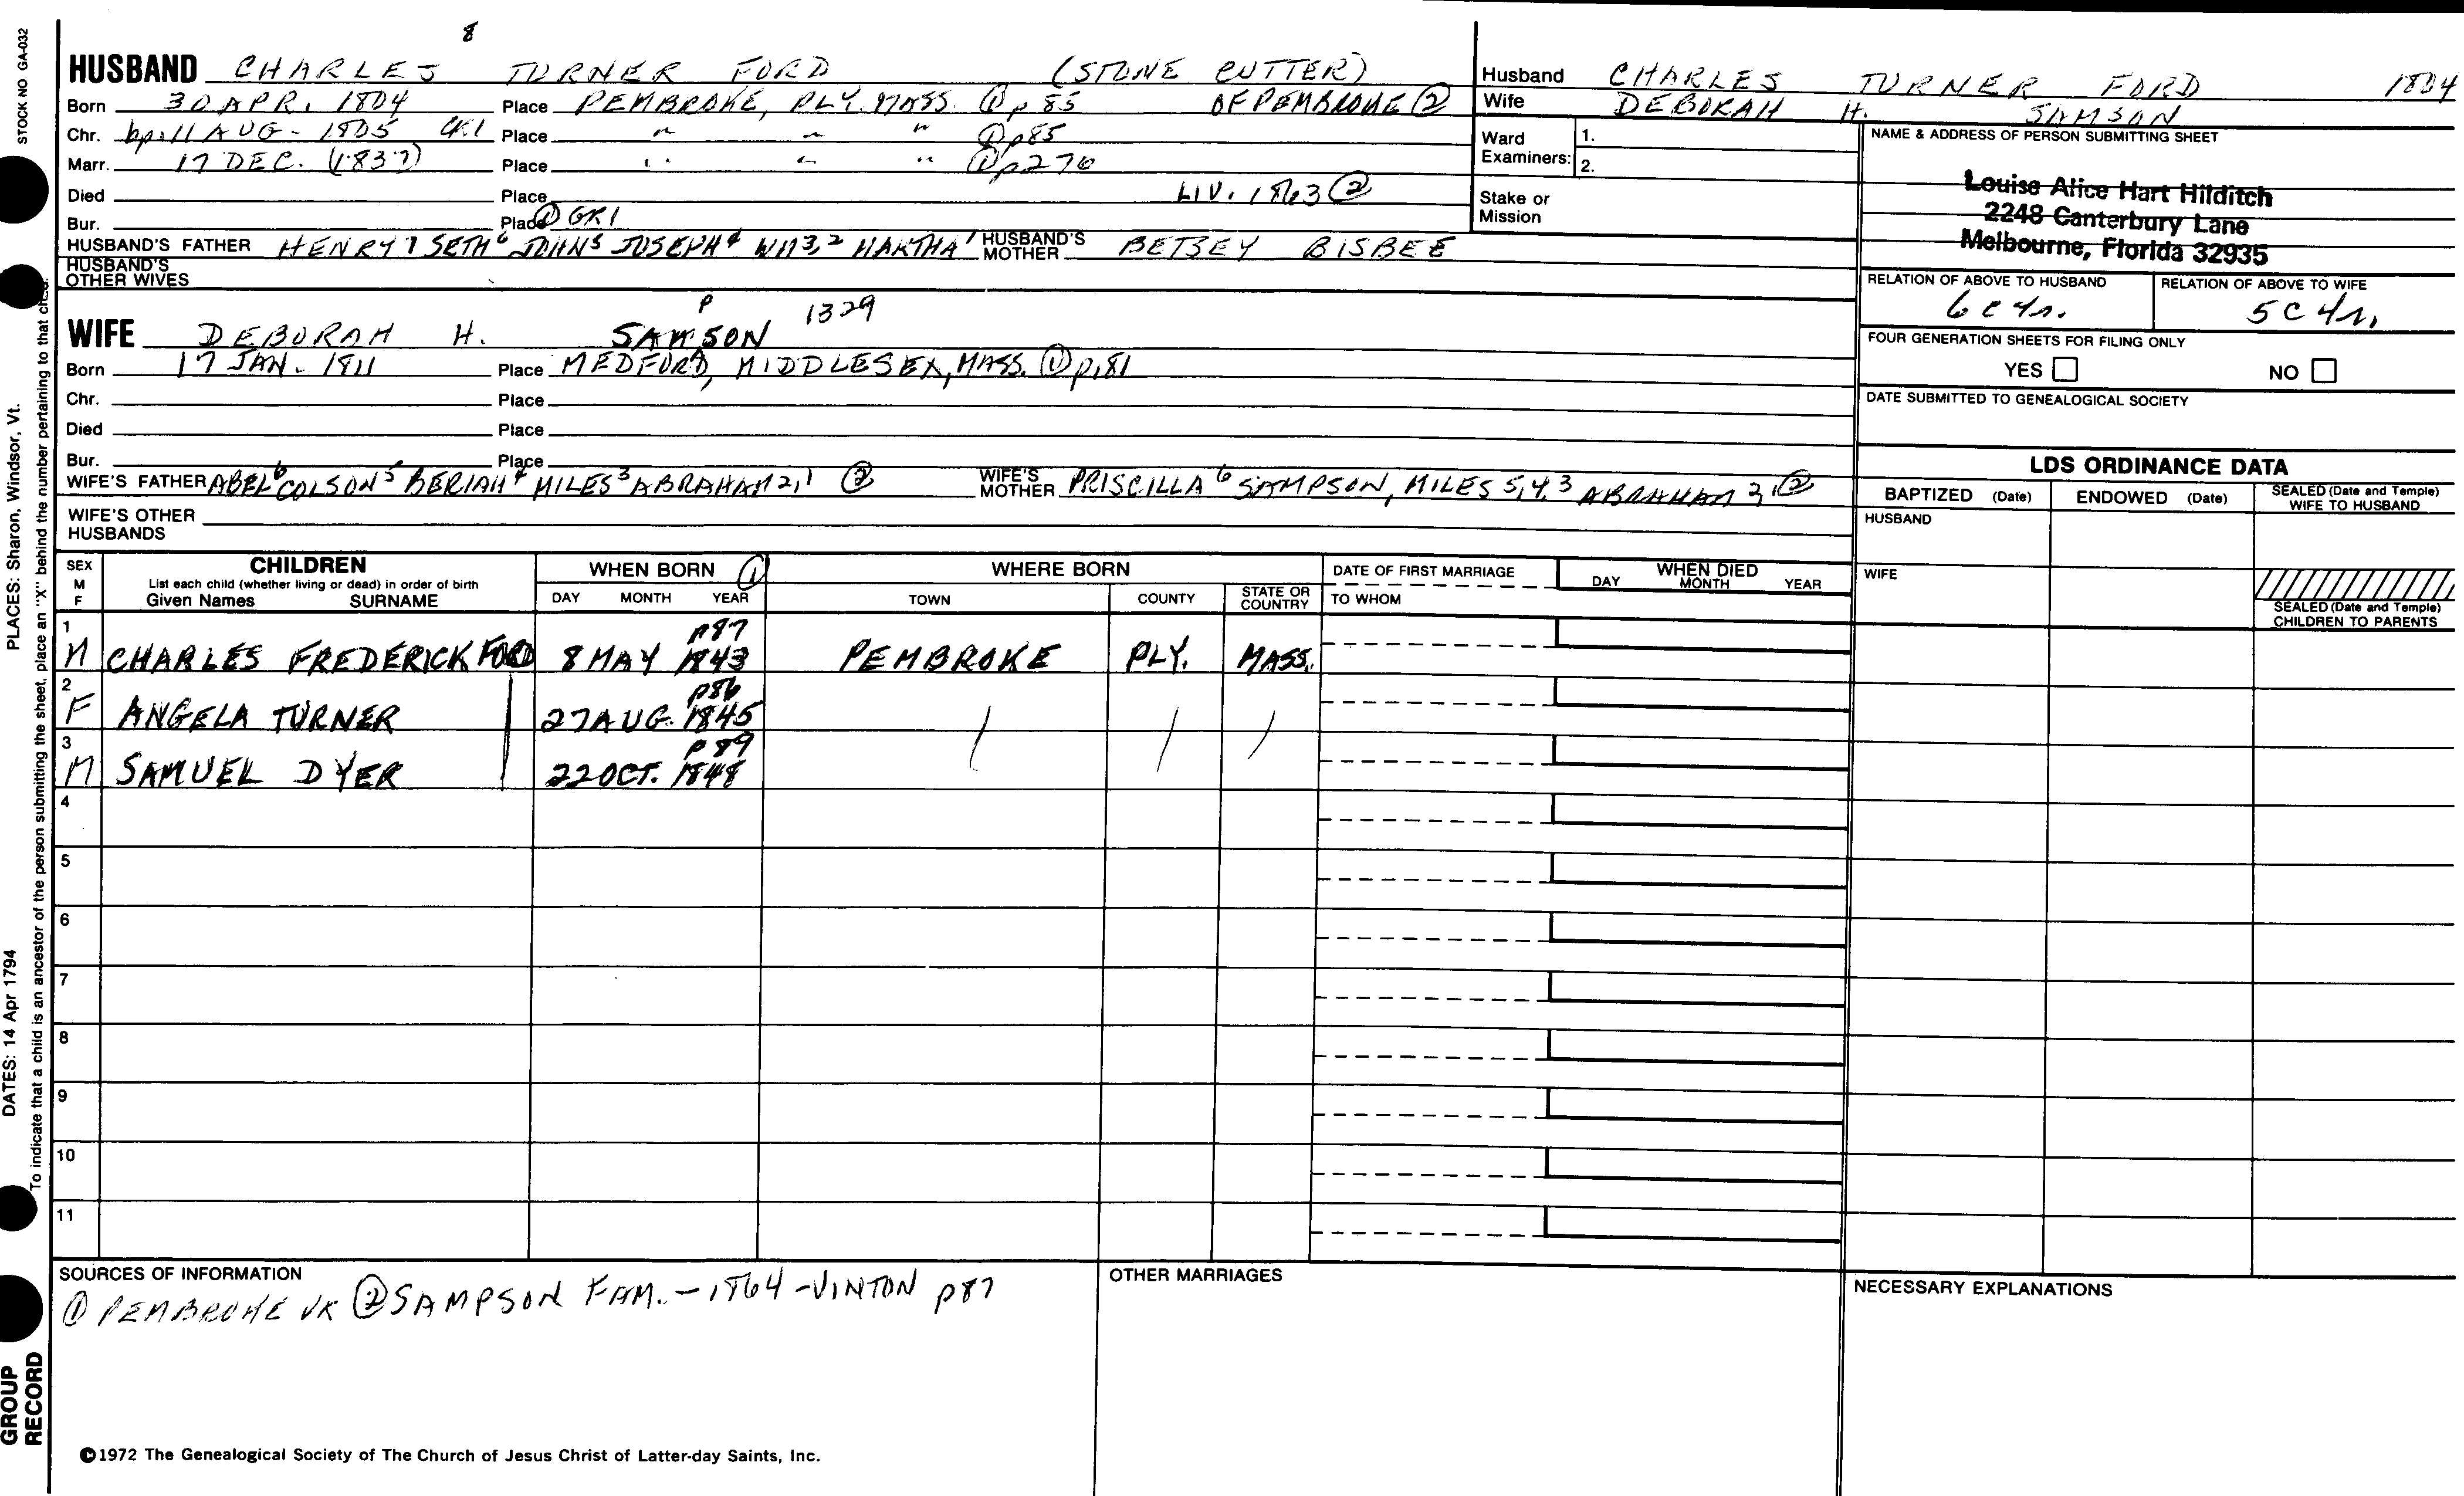 8
HUSBAND CHARLES TURNER FORD (STONE CUTTER)
Born 30 APR. 1804 Place PEMBROKE, PLY. MASS. ① p 85 OF PEMBROKE ②
Chr. bp. 11 AUG - 1805 CR1 Place " " " ① p85
Marr. 17 DEC. (1837) Place " " " ① p276
Died Place LIV. 1863 ②
Bur. Place ① GR1
HUSBAND'S FATHER HENRY 7 SETH 6 JOHN 5 JOSEPH 4 WM 3,2 MARTHA 1 HUSBAND'S MOTHER BETSEY BISBEE
HUSBAND'S OTHER WIVES
P 1329
WIFE DEBORAH H. SAMSON
Born 17 JAN. 1811 Place MEDFORD, MIDDLESEX, MASS. ① p181
Chr. Place
Died Place
Bur. Place
WIFE'S FATHER ABEL 6 COLSON 5 BERIAH 4 MILES 3 ABRAHAM 2,1 ② WIFE'S MOTHER PRISCILLA 6 SAMPSON, MILES 5,4,3 ABRAHAM 2,1 ②
WIFE'S OTHER HUSBANDS
Husband CHARLES TURNER FORD 1804
Wife DEBORAH H. SAMSON
Ward Examiners: 1.
2.
Stake or Mission
NAME & ADDRESS OF PERSON SUBMITTING SHEET
Louise Alice Hart Hilditch
2248 Canterbury Lane
Melbourne, Florida 32935
RELATION OF ABOVE TO HUSBAND RELATION OF ABOVE TO WIFE
6 C 4 r. 5 C 4 r.
FOUR GENERATION SHEETS FOR FILING ONLY
YES NO
DATE SUBMITTED TO GENEALOGICAL SOCIETY
LDS ORDINANCE DATA
BAPTIZED (Date) ENDOWED (Date) SEALED (Date and Temple) WIFE TO HUSBAND
HUSBAND
WIFE
SEALED (Date and Temple) CHILDREN TO PARENTS
SEX M F CHILDREN WHEN BORN ① WHERE BORN DATE OF FIRST MARRIAGE WHEN DIED
List each child (whether living or dead) in order of birth DAY MONTH YEAR
Given Names SURNAME DAY MONTH YEAR TOWN COUNTY STATE OR COUNTRY TO WHOM
1 p87
M CHARLES FREDERICK FORD 8 MAY 1843 PEMBROKE PLY. MASS.
2 p86
F ANGELA TURNER 27 AUG. 1845
3 p89
M SAMUEL DYER 22 OCT. 1848
4
5
6
7
8
9
10
11
SOURCES OF INFORMATION
① PEMBROKE VR ② SAMPSON FAM. - 1864 - VINTON p87
OTHER MARRIAGES
NECESSARY EXPLANATIONS
©1972 The Genealogical Society of The Church of Jesus Christ of Latter-day Saints, Inc.
STOCK NO GA-032
PLACES: Sharon, Windsor, Vt.
DATES: 14 Apr 1794
To indicate that a child is an ancestor of the person submitting the sheet, place an "X" behind the number pertaining to that child.
GROUP RECORD